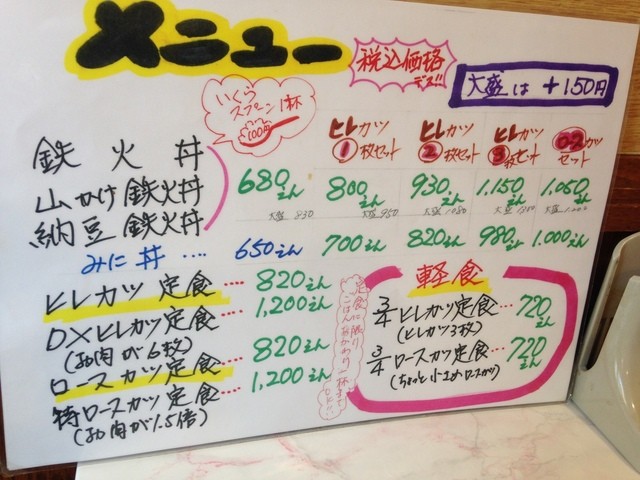 メニュー
税込価格デス!!
大盛は +150円
いくらスプーン1杯100円
ヒレカツ1枚セット
ヒレカツ2枚セット
ヒレカツ3枚セット
ロースカツセット
鉄火丼
山かけ鉄火丼
納豆鉄火丼
680えん 800えん 930えん 1,150えん 1,050えん
大盛 830 大盛 950 大盛 1080
みに丼 ‥‥ 650えん 700えん 820えん 980えん 1,000えん
ヒレカツ定食 ‥‥ 820えん
DXヒレカツ定食 ‥‥ 1,200えん
(お肉が6枚)
ロースカツ定食 ‥‥ 820えん
特ロースカツ定食 ‥‥ 1,200えん
(お肉が1.5倍)
定食に限りごはんおかわり一杯までOK!!
軽食
3/4 ヒレカツ定食‥‥720えん
(ヒレカツ3枚)
3/4 ロースカツ定食‥‥720えん
(ちょっと小さめロースカツ)